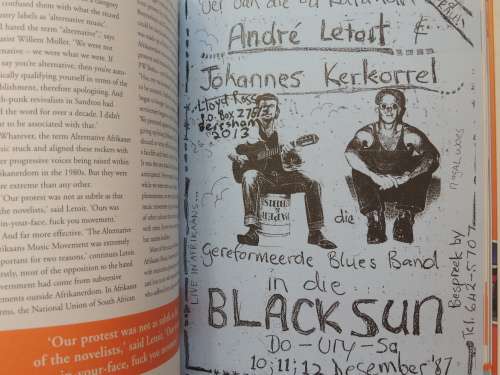 confused them with what the record
ry labels 'alternative music'.
I hated the term "alternative",' says
rist Willem Möller. 'We were not
native – we were what we were. If
say you're alternative, then you're auto-
ically qualifying yourself in terms of the
blishment, therefore apologising. And
d-punk revivalists in Sandton had
d the word for over a decade. I didn't
nt to be associated with that.'
Whatever, the term Alternative Afrikaans
usic stuck and aligned these rockers with
er progressive voices being raised within
ikanerdom in the 1980s. But they were
re extreme than any other.
'Our protest was not as subtle as this
the novelists,' said Letoit. 'Ours was
in-your-face, fuck you movement.
And far more effective. 'The Alternative
rikaans Music Movement was extremely
portant for two reasons,' continues Letoit
ently, most of the opposition to the hard
vernment had come from subversive
ements outside Afrikanerdom. In South African
rms, the National Union of South African
'Our protest was not as subtle as
of the novelists,' said Letoit. 'Ours
in-your-face, fuck you movement
André Letoit &
Johannes Kerkorrel
Lloyd Ross
P.O. Box 27513
Bertsham
2013
die
LIVE IN AFRIKAANS...
Gereformeerde Blues Band
in die
BLACK SUN
Do - Vry - Sa
10; 11; 12 Desember '87
Bespreek by
Tel. 642-5707